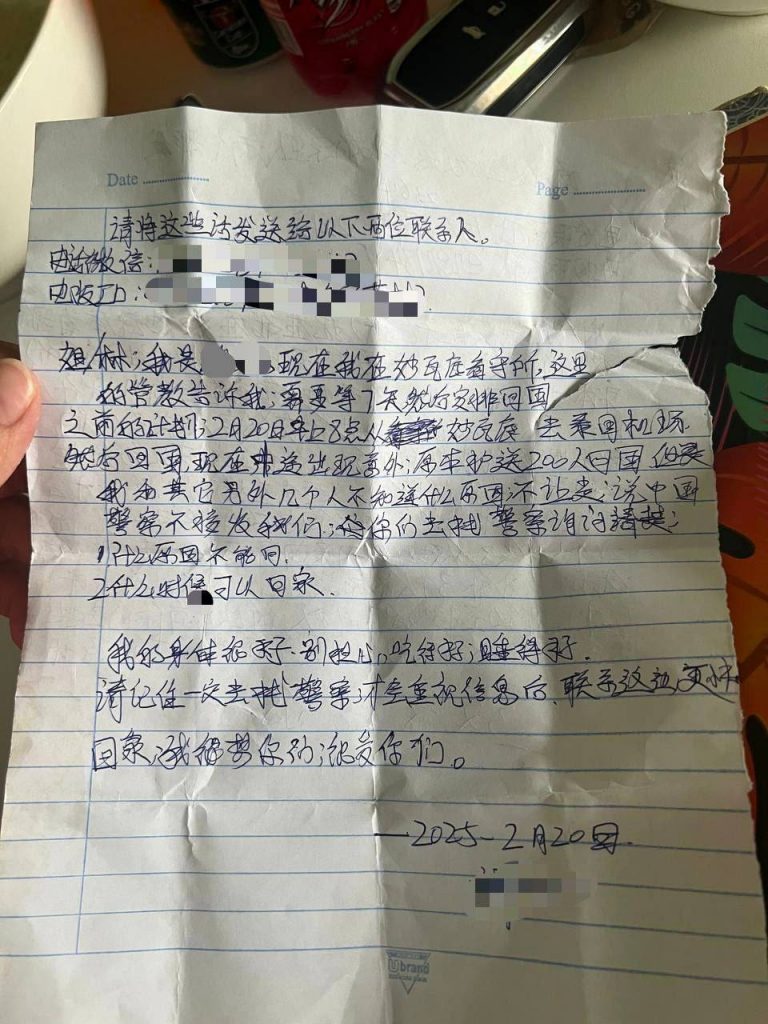 Date
Page
请将这些话发送给以下两位联系人。
电话微信:
电版ID:
想林;我是 现在我在妙瓦底看守所,这里
的管教告许我;需要等7天然后安排回国
之前的计划;2月20日早上8点从 妙瓦底 去泰国机场
然后回国 现在 出现意外;原本护送200人回国 但是
我和其它另外几个人不知道什么原因;不让走;说中国
警察不接收我们; 你们去找警察询问
1什么原因不能回.
2什么时候可以回家.
我的身体很好.别担心,吃得好;睡得好.
请记住一定去找警察;才会重视信息后.联系这边,
回家,我很想你们;很爱你们。
—2025-2月20日.
Ubrand